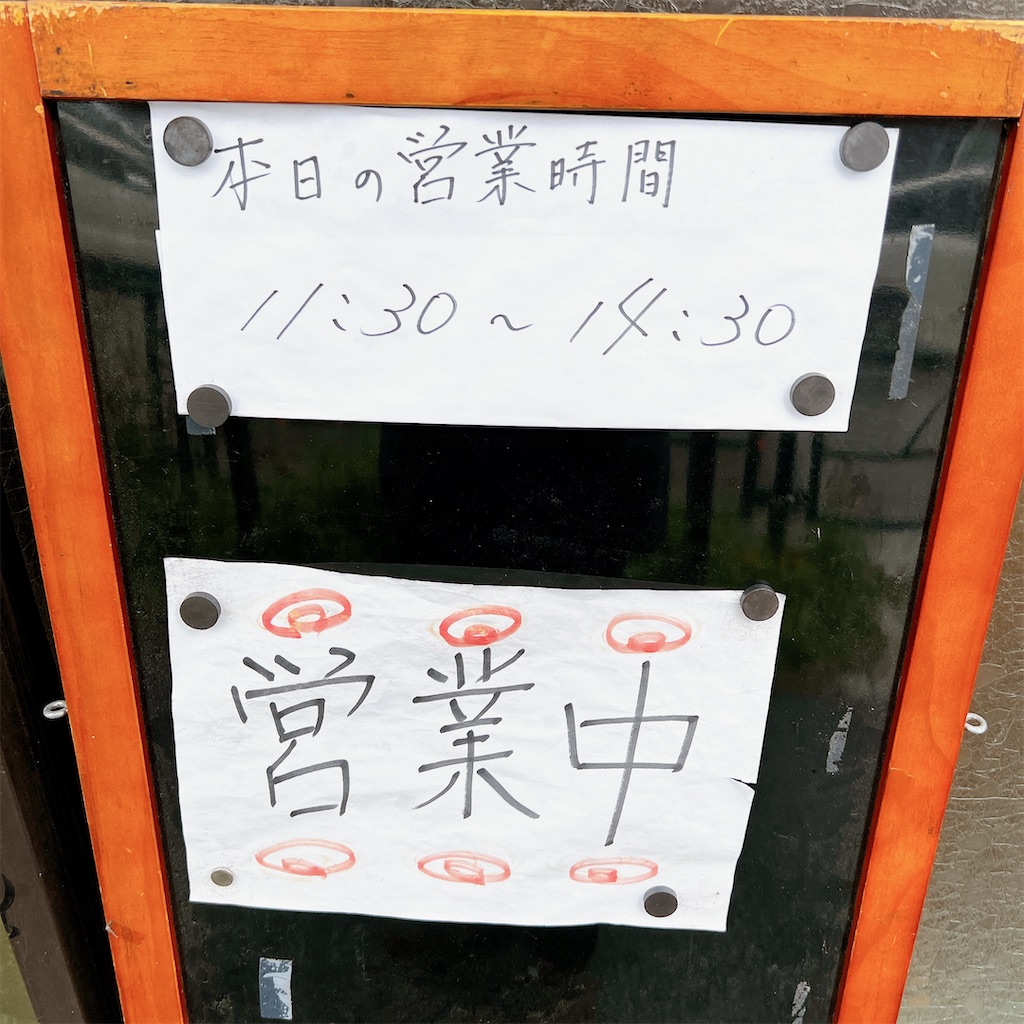 本日の営業時間
11:30~14:30
営業中